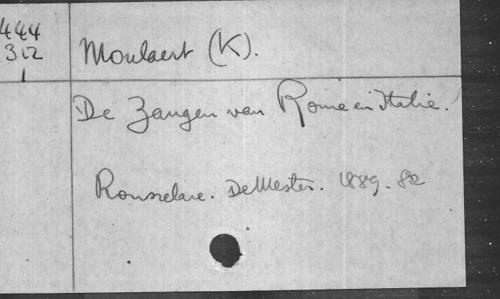 444
312
1
Moulaert (K).
De Zangen van Rome en Italie.
Rousselare. De Mester. 1889. 8º